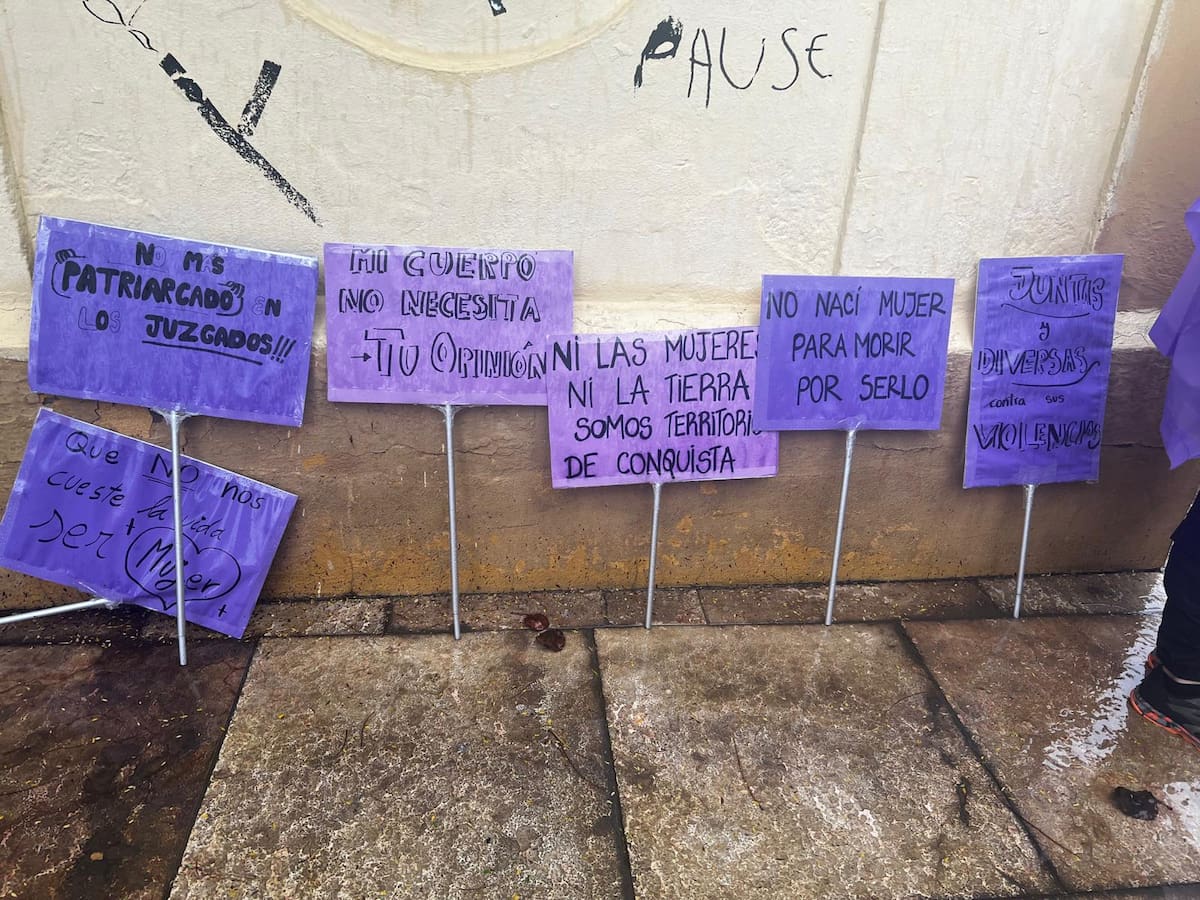 PAUSE
NO MÁS
PATRIARCADO EN
LOS JUZGADOS!!!
MI CUERPO
NO NECESITA
TU OPINIÓN
NI LAS MUJERES
NI LA TIERRA
SOMOS TERRITORIO
DE CONQUISTA
NO NACÍ MUJER
PARA MORIR
POR SERLO
JUNTAS
y
DIVERSAS
contra sus
VIOLENCIAS
Que NO nos
cueste la vida
ser
Mujer